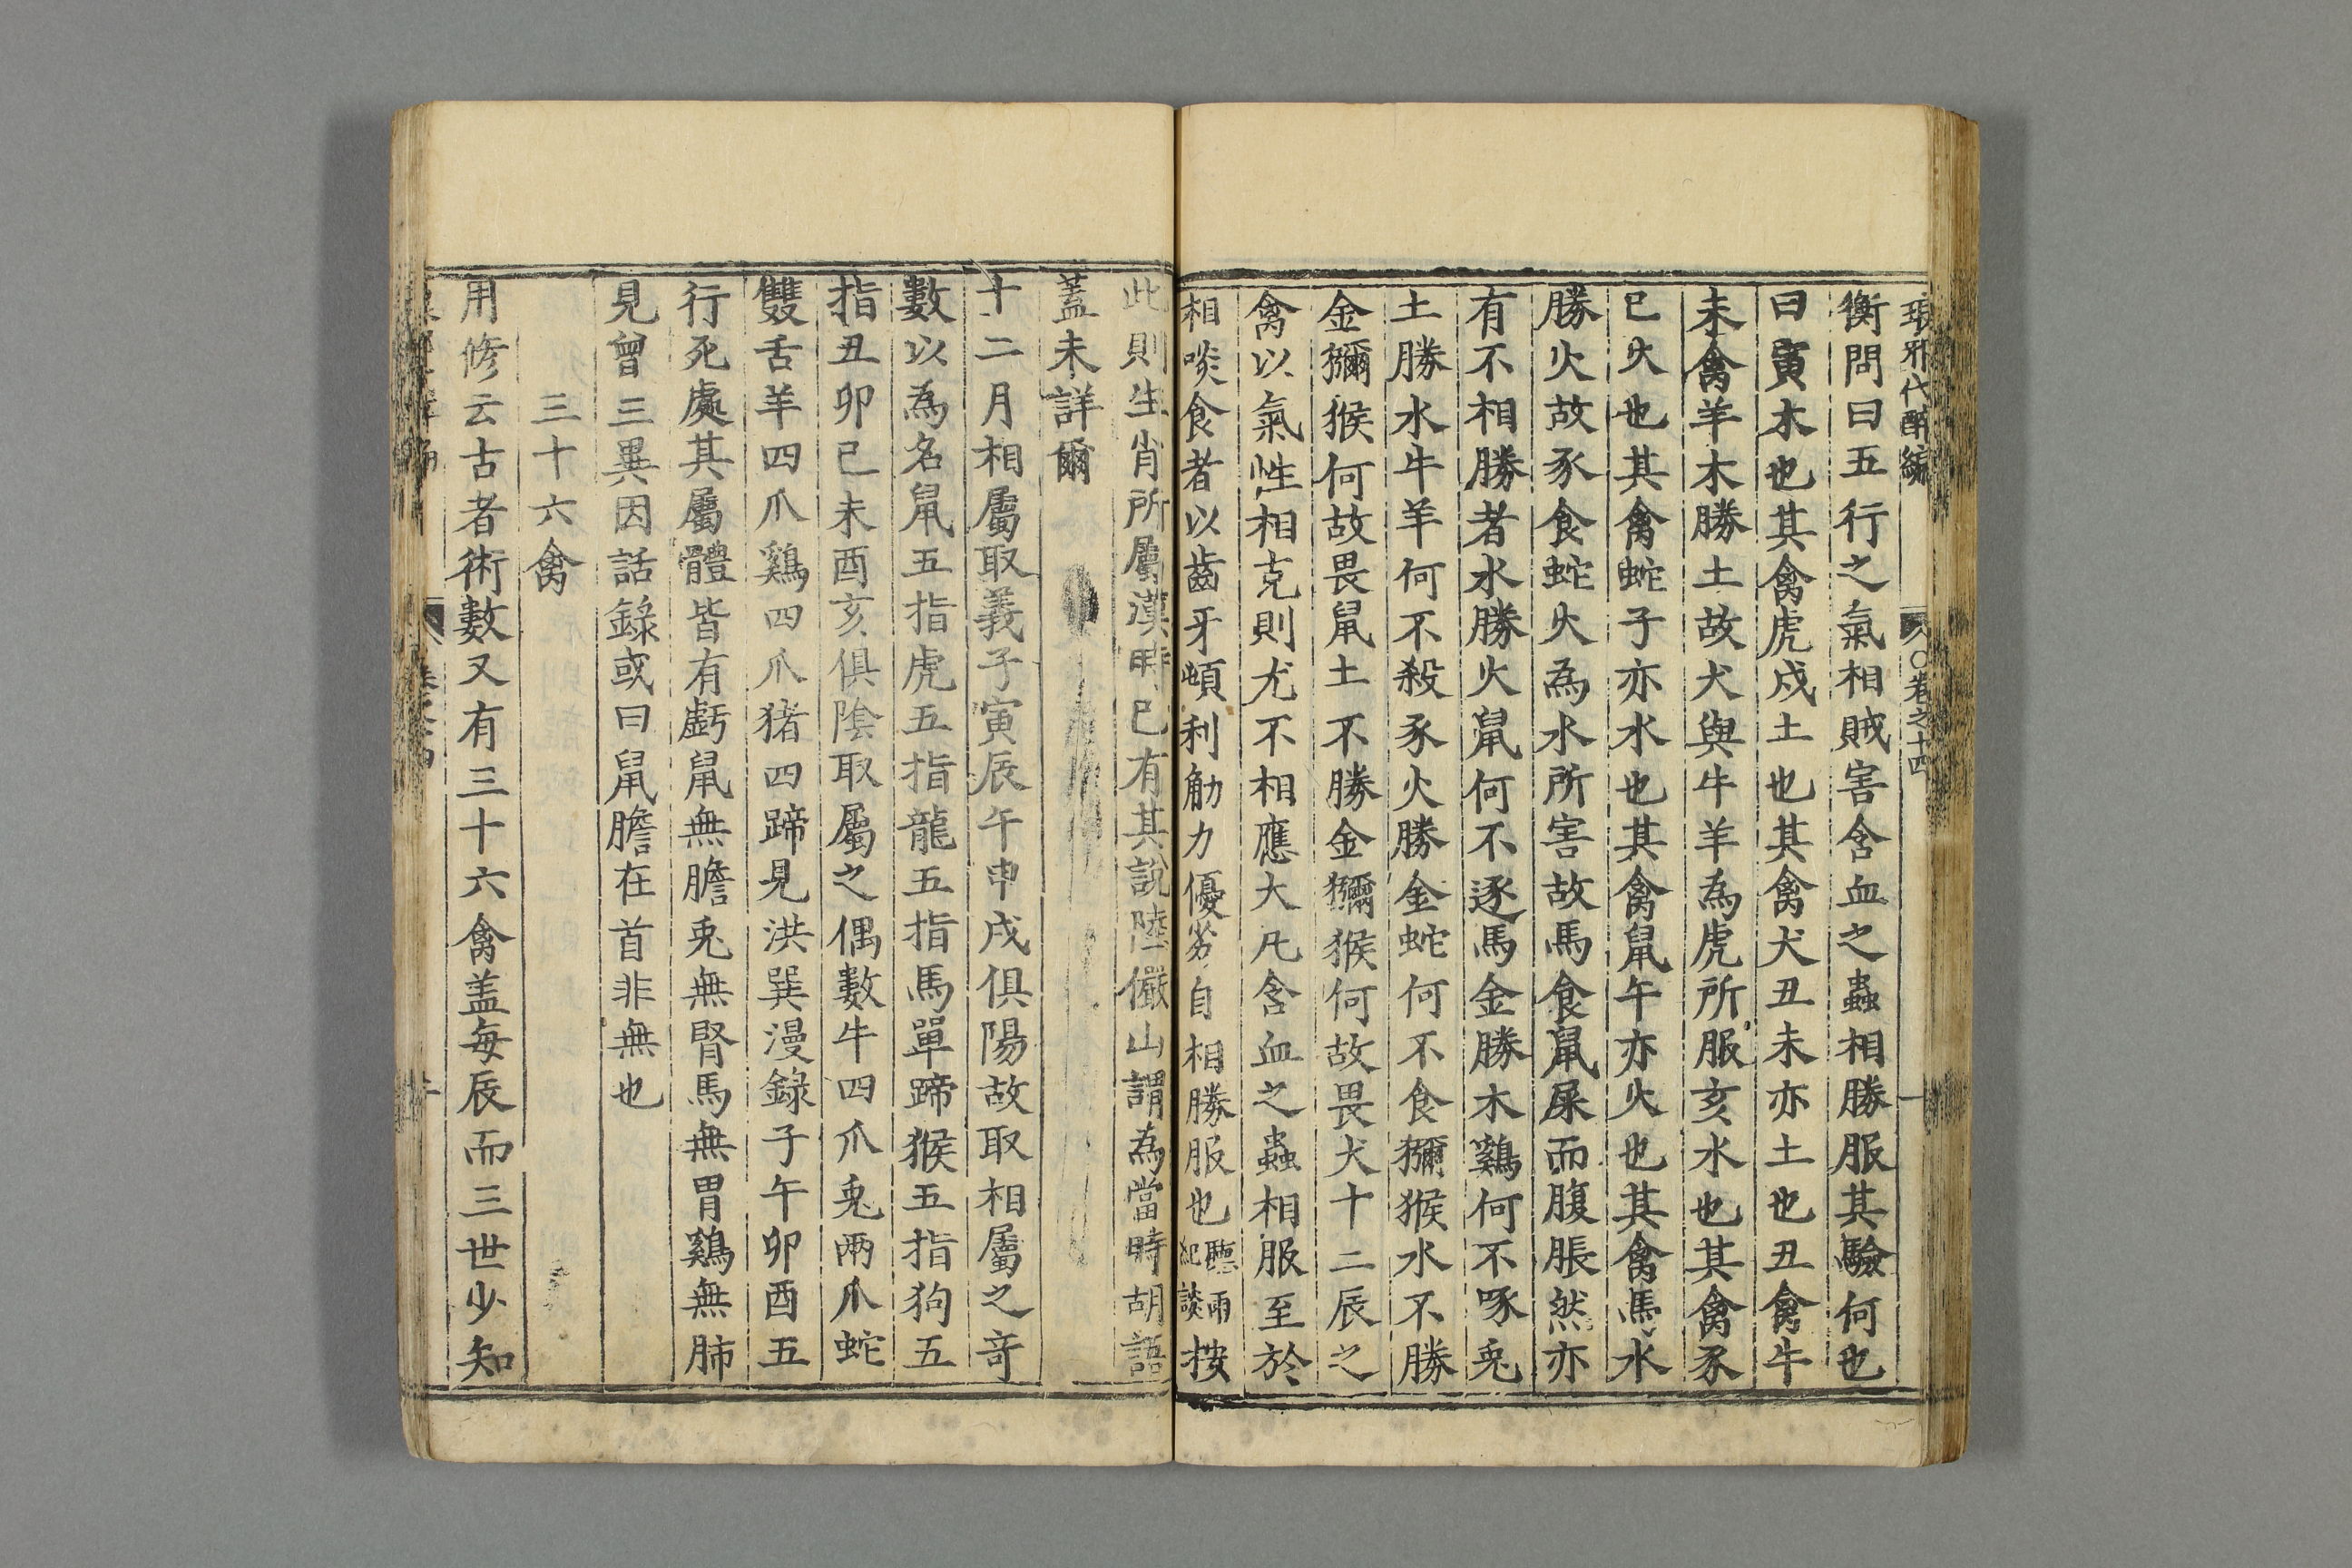 琅邪代醉編 ○卷之十四 一
衡問曰五行之氣相賊害含血之蟲相勝服其驗何也
曰寅木也其禽虎戍土也其禽犬丑未亦土也丑禽牛
未禽羊木勝土故犬與牛羊為虎所服亥水也其禽豕
巳火也其禽蛇子亦水也其禽鼠午亦火也其禽馬水
勝火故豕食蛇火為水所害故馬食鼠屎而腹脹然亦
有不相勝者水勝火鼠何不逐馬金勝木鷄何不啄兎
土勝水牛羊何不殺豕火勝金蛇何不食獼猴水不勝
金獼猴何故畏鼠土不勝金獼猴何故畏犬十二辰之
禽以氣性相克則尤不相應大凡含血之蟲相服至於
相啖食者以齒牙頓利觔力優劣自相勝服也聽雨紀談按
此則生肖所屬漢時已有其說陸儼山謂為當時胡語
蓋未詳爾
十二月相屬取義子寅辰午申戌俱陽故取相屬之奇
數以為名鼠五指虎五指龍五指馬單蹄猴五指狗五
指丑卯巳未酉亥俱陰取屬之偶數牛四爪兎兩爪蛇
雙舌羊四爪鷄四爪猪四蹄見洪巽漫錄子午卯酉五
行死處其屬體皆有虧鼠無膽兎無腎馬無胃鷄無肺
見曾三異因話錄或曰鼠膽在首非無也
三十六禽
用修云古者術數又有三十六禽盖每辰而三世少知